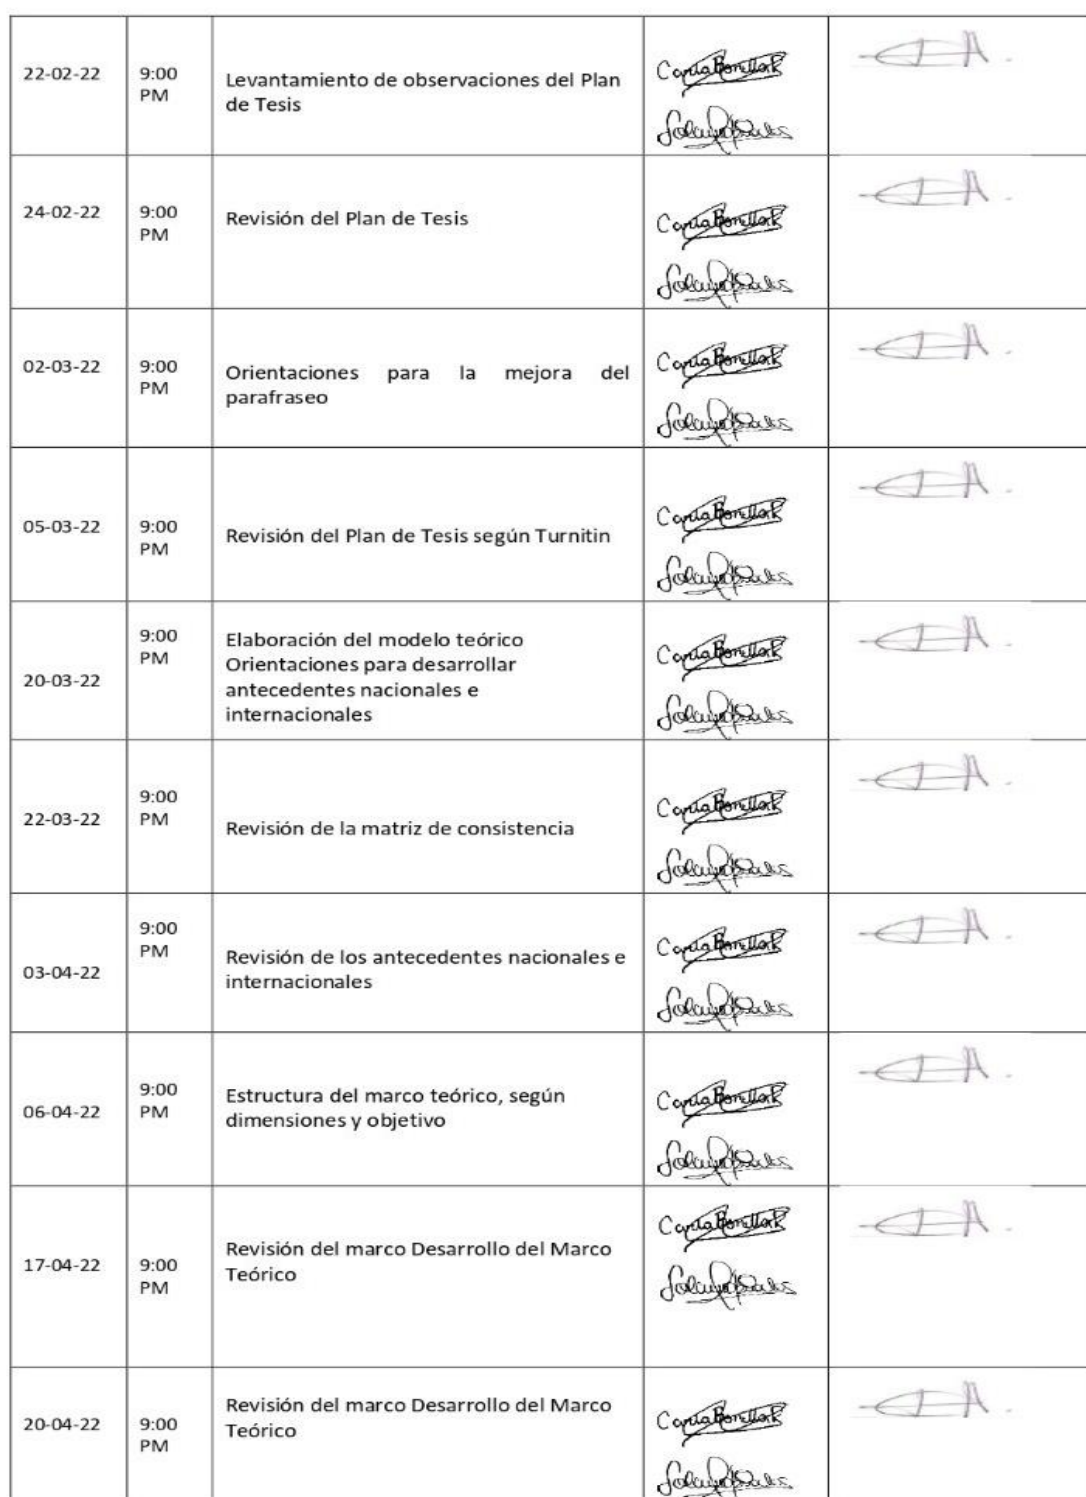 22-02-22
9:00
PM
Levantamiento de observaciones del Plan
de Tesis
24-02-22
9:00
PM
Revisión del Plan de Tesis
02-03-22
9:00
PM
Orientaciones para la mejora del
parafraseo
05-03-22
9:00
PM
Revisión del Plan de Tesis según Turnitin
20-03-22
9:00
PM
Elaboración del modelo teórico
Orientaciones para desarrollar
antecedentes nacionales e
internacionales
22-03-22
9:00
PM
Revisión de la matriz de consistencia
03-04-22
9:00
PM
Revisión de los antecedentes nacionales e
internacionales
06-04-22
9:00
PM
Estructura del marco teórico, según
dimensiones y objetivo
17-04-22
9:00
PM
Revisión del marco Desarrollo del Marco
Teórico
20-04-22
9:00
PM
Revisión del marco Desarrollo del Marco
Teórico